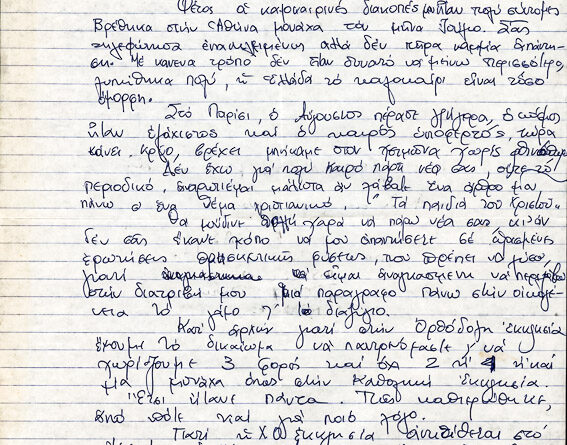 Φέτος οι καλοκαιρινές διακοπές μου ήταν πολύ σύντομες
Βρέθηκα στην Αθήνα μονάχα τον μήνα Ιούλιο. Σας
τηλεφώνησα επανειλημένως αλλά δέν πήρα καμμία απάντη-
ση. Με κανενα τρόπο δεν ήταν δυνατό να μείνω περισσότερο,
λυπήθηκα πολύ, η Ελλάδα το καλοκαίρι είναι τόσο
όμορφη.
Στό Παρίσι, ο Αύγουστος πέρασε γρήγορα, ο κόσμος
ήταν ελάχιστος και ο καιρός υποφερτός, τώρα
κάνει κρύο, βρέχει μπήκαμε στον χειμώνα χωρίς φθινόπωρο
Δεν έχω γιά πολύ καιρό πάρη νέα σας, ούτε το
περιοδικό, αναρωτιέμαι μάλιστα άν λάβατε ένα άρθρο μου
πάνω σ' ένα θέμα χριστιανικό. "Τα παιδιά του Χριστού"
Θα μούδινε πολλή χαρά να πάρω νέα σας κι άν
δεν σας έκανε κόπο να μου απαντήσετε σέ ωρισμένες
ερωτήσεις θρησκευτικής φύσεως, που πρέπει να
γιατί είμαι αναγκασμένη να περιλάβω
στην διατριβή μου μιά παράγραφο πάνω στην οικογέ-
νεια το γάμο ή το διαζύγιο.
Κατ' αρχήν γιατί στην Ορθόδοξη εκκλησία
έχουμε το δικαίωμα να παντρευόμαστε ή νά
χωρίζουμε 3 φορές και όχι 2 ή 4 ή και
μιά μονάχα όπως στην Καθολική εκκλησία.
Έτσι ήτανε πάντα. Πώς καθιερώθηκε,
από πότε και γιά ποιό λόγο.
Γιατί η ΧΟ εκκλησία αντιτίθεται στό